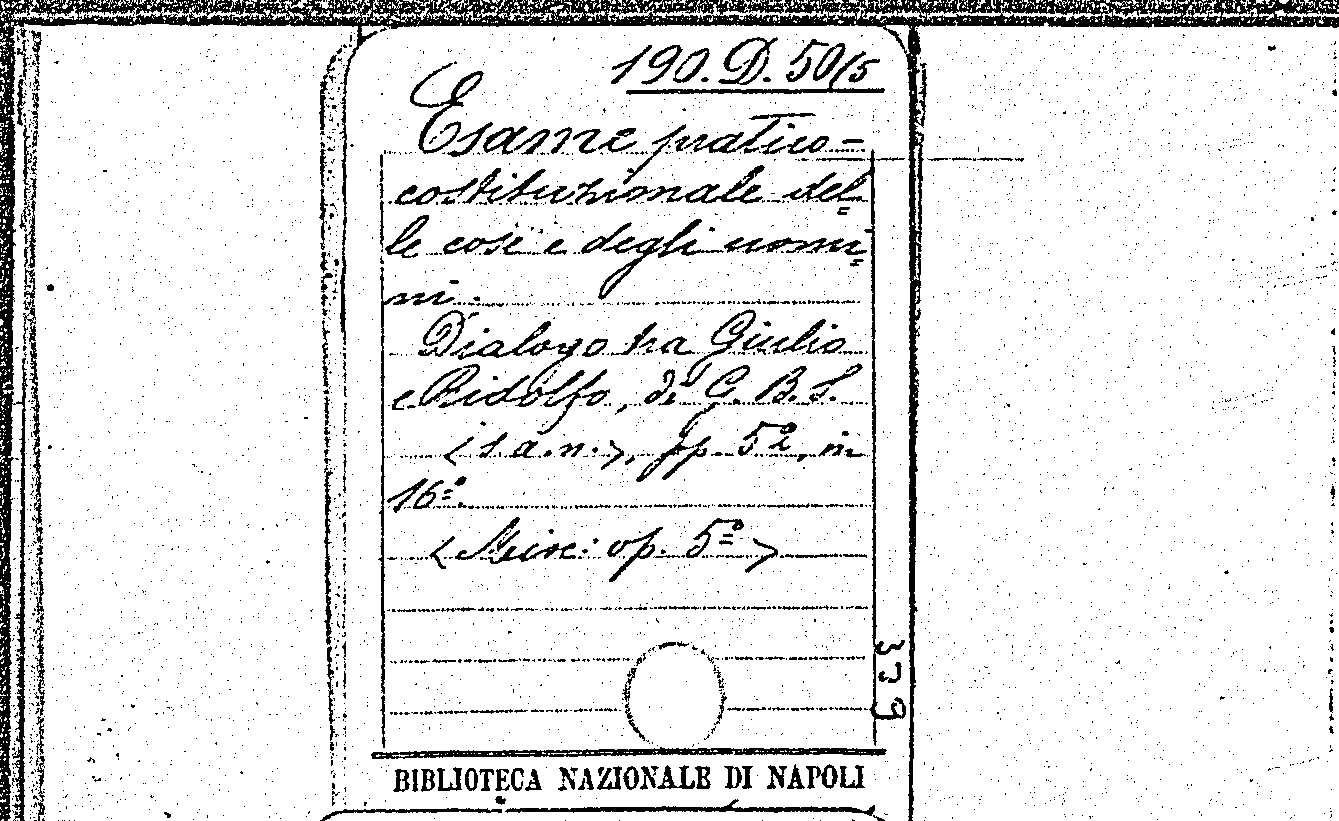 190. D. 50/5
Esame pratico-
costituzionale del=
le cose e degli uomi=
ni.
Dialogo tra Giulio
e Ridolfo, di G. B. S.
<s. a. n.>, pp. 52, in
16º.
<Misc: op. 5º>
339
BIBLIOTECA NAZIONALE DI NAPOLI